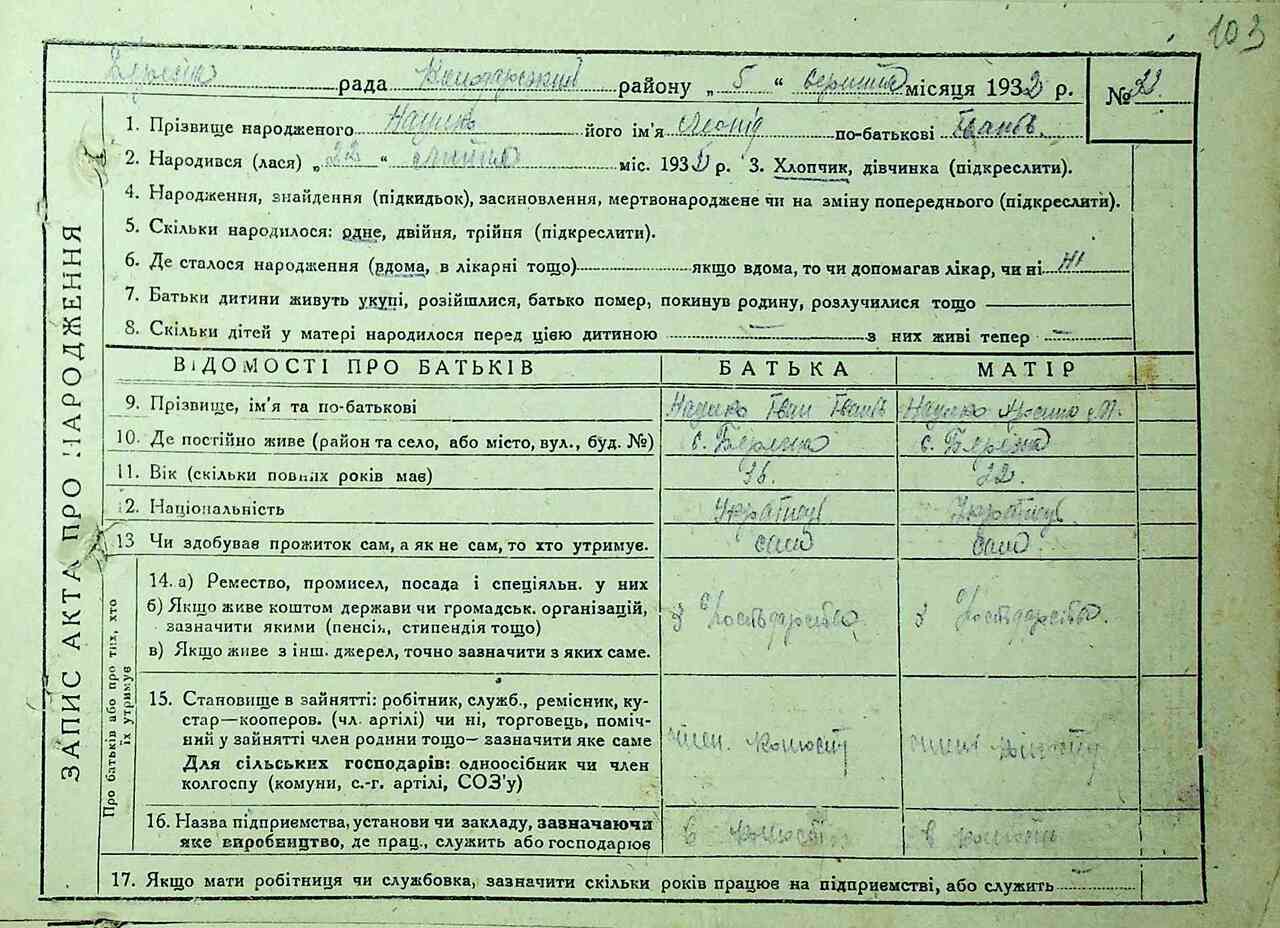 103
рада району „ 5 “ серпня місяця 1932 р. №
1. Прізвище народженого його ім'я Леонід по-батькові Іванов.
2. Народився (лася) „ 22 “ міс. 1932 р. 3. Хлопчик, дівчинка (підкреслити).
4. Народження, знайдення (підкидьок), засиновлення, мертвонароджене чи на зміну попереднього (підкреслити).
5. Скільки народилося: одне, двійня, трійня (підкреслити).
6. Де сталося народження (вдома, в лікарні тощо) якщо вдома, то чи допомагав лікар, чи ні ні
7. Батьки дитини живуть укупі, розійшлися, батько помер, покинув родину, розлучилися тощо
8. Скільки дітей у матері народилося перед цією дитиною — з них живі тепер —
ВІДОМОСТІ ПРО БАТЬКІВ БАТЬКА МАТІР
9. Прізвище, ім'я та по-батькові Іван Іванов
10. Де постійно живе (район та село, або місто, вул., буд. №) с. с.
11. Вік (скільки повних років має) 22.
12. Національність
13 Чи здобував прожиток сам, а як не сам, то хто утримує. сам сам
14. а) Ремество, промисел, посада і спеціяльн. у них
б) Якщо живе коштом держави чи громадськ. організацій,
зазначити якими (пенсія, стипендія тощо) з господарства з господарства.
в) Якщо живе з інш. джерел, точно зазначити з яких саме.
15. Становище в зайнятті: робітник, служб., ремісник, ку-
стар—кооперов. (чл. артілі) чи ні, торговець, поміч-
ний у зайнятті член родини тощо— зазначити яке саме член.
Для сільських господарів: одноосібник чи член
колгоспу (комуни, с.-г. артілі, СОЗ'у)
16. Назва підприємства, установи чи закладу, зазначаючи
яке виробництво, де прац., служить або господарює в в
17. Якщо мати робітниця чи службовка, зазначити скільки років працює на підприємстві, або служить
ЗАПИС АКТА ПРО НАРОДЖЕННЯ
Про батьків або про тих, хто
їх утримує